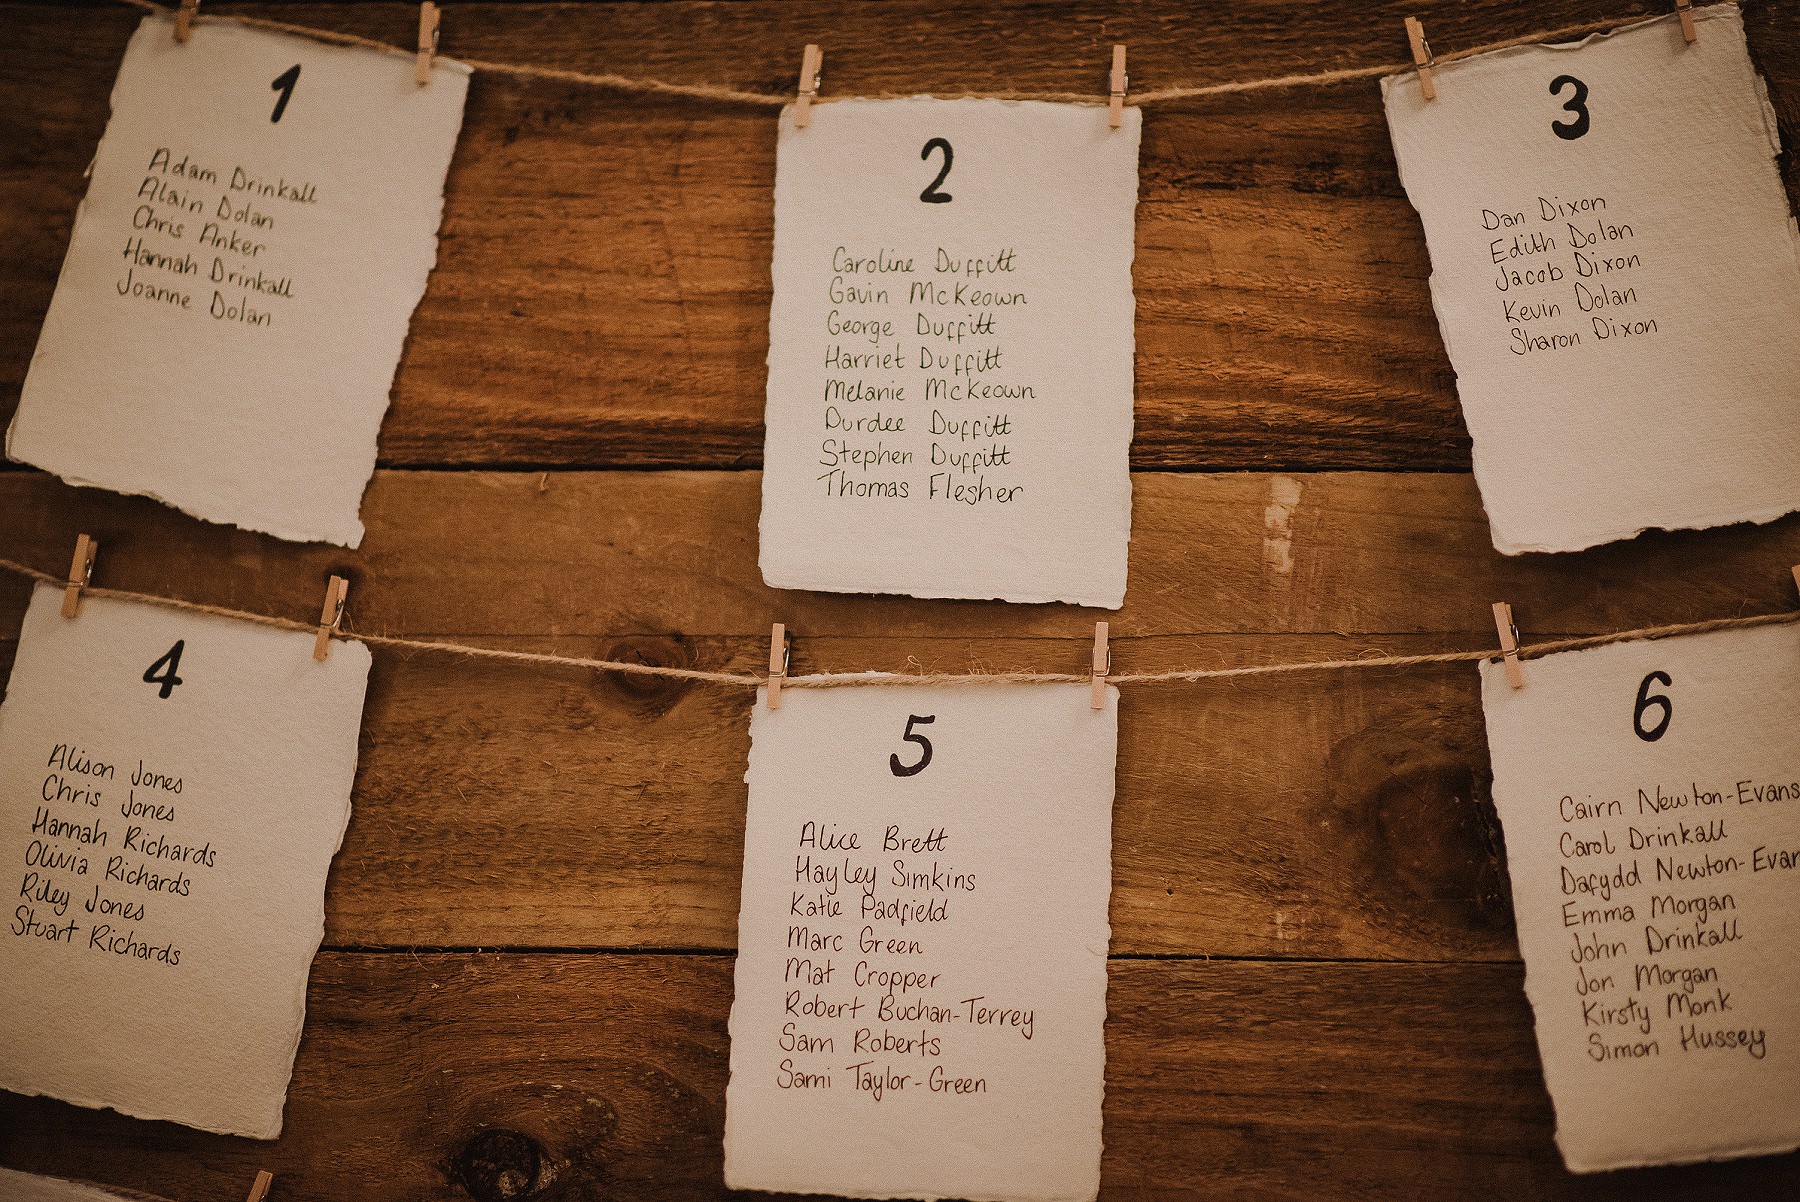 1
Adam Drinkall
Alain Dolan
Chris Anker
Hannah Drinkall
Joanne Dolan
2
Caroline Duffitt
Gavin McKeown
George Duffitt
Harriet Duffitt
Melanie McKeown
Durdee Duffitt
Stephen Duffitt
Thomas Flesher
3
Dan Dixon
Edith Dolan
Jacob Dixon
Kevin Dolan
Sharon Dixon
4
Alison Jones
Chris Jones
Hannah Richards
Olivia Richards
Riley Jones
Stuart Richards
5
Alice Brett
Hayley Simkins
Katie Padfield
Marc Green
Mat Cropper
Robert Buchan-Terrey
Sam Roberts
Sami Taylor-Green
6
Cairn Newton-Evans
Carol Drinkall
Dafydd Newton-Evan
Emma Morgan
John Drinkall
Jon Morgan
Kirsty Monk
Simon Hussey